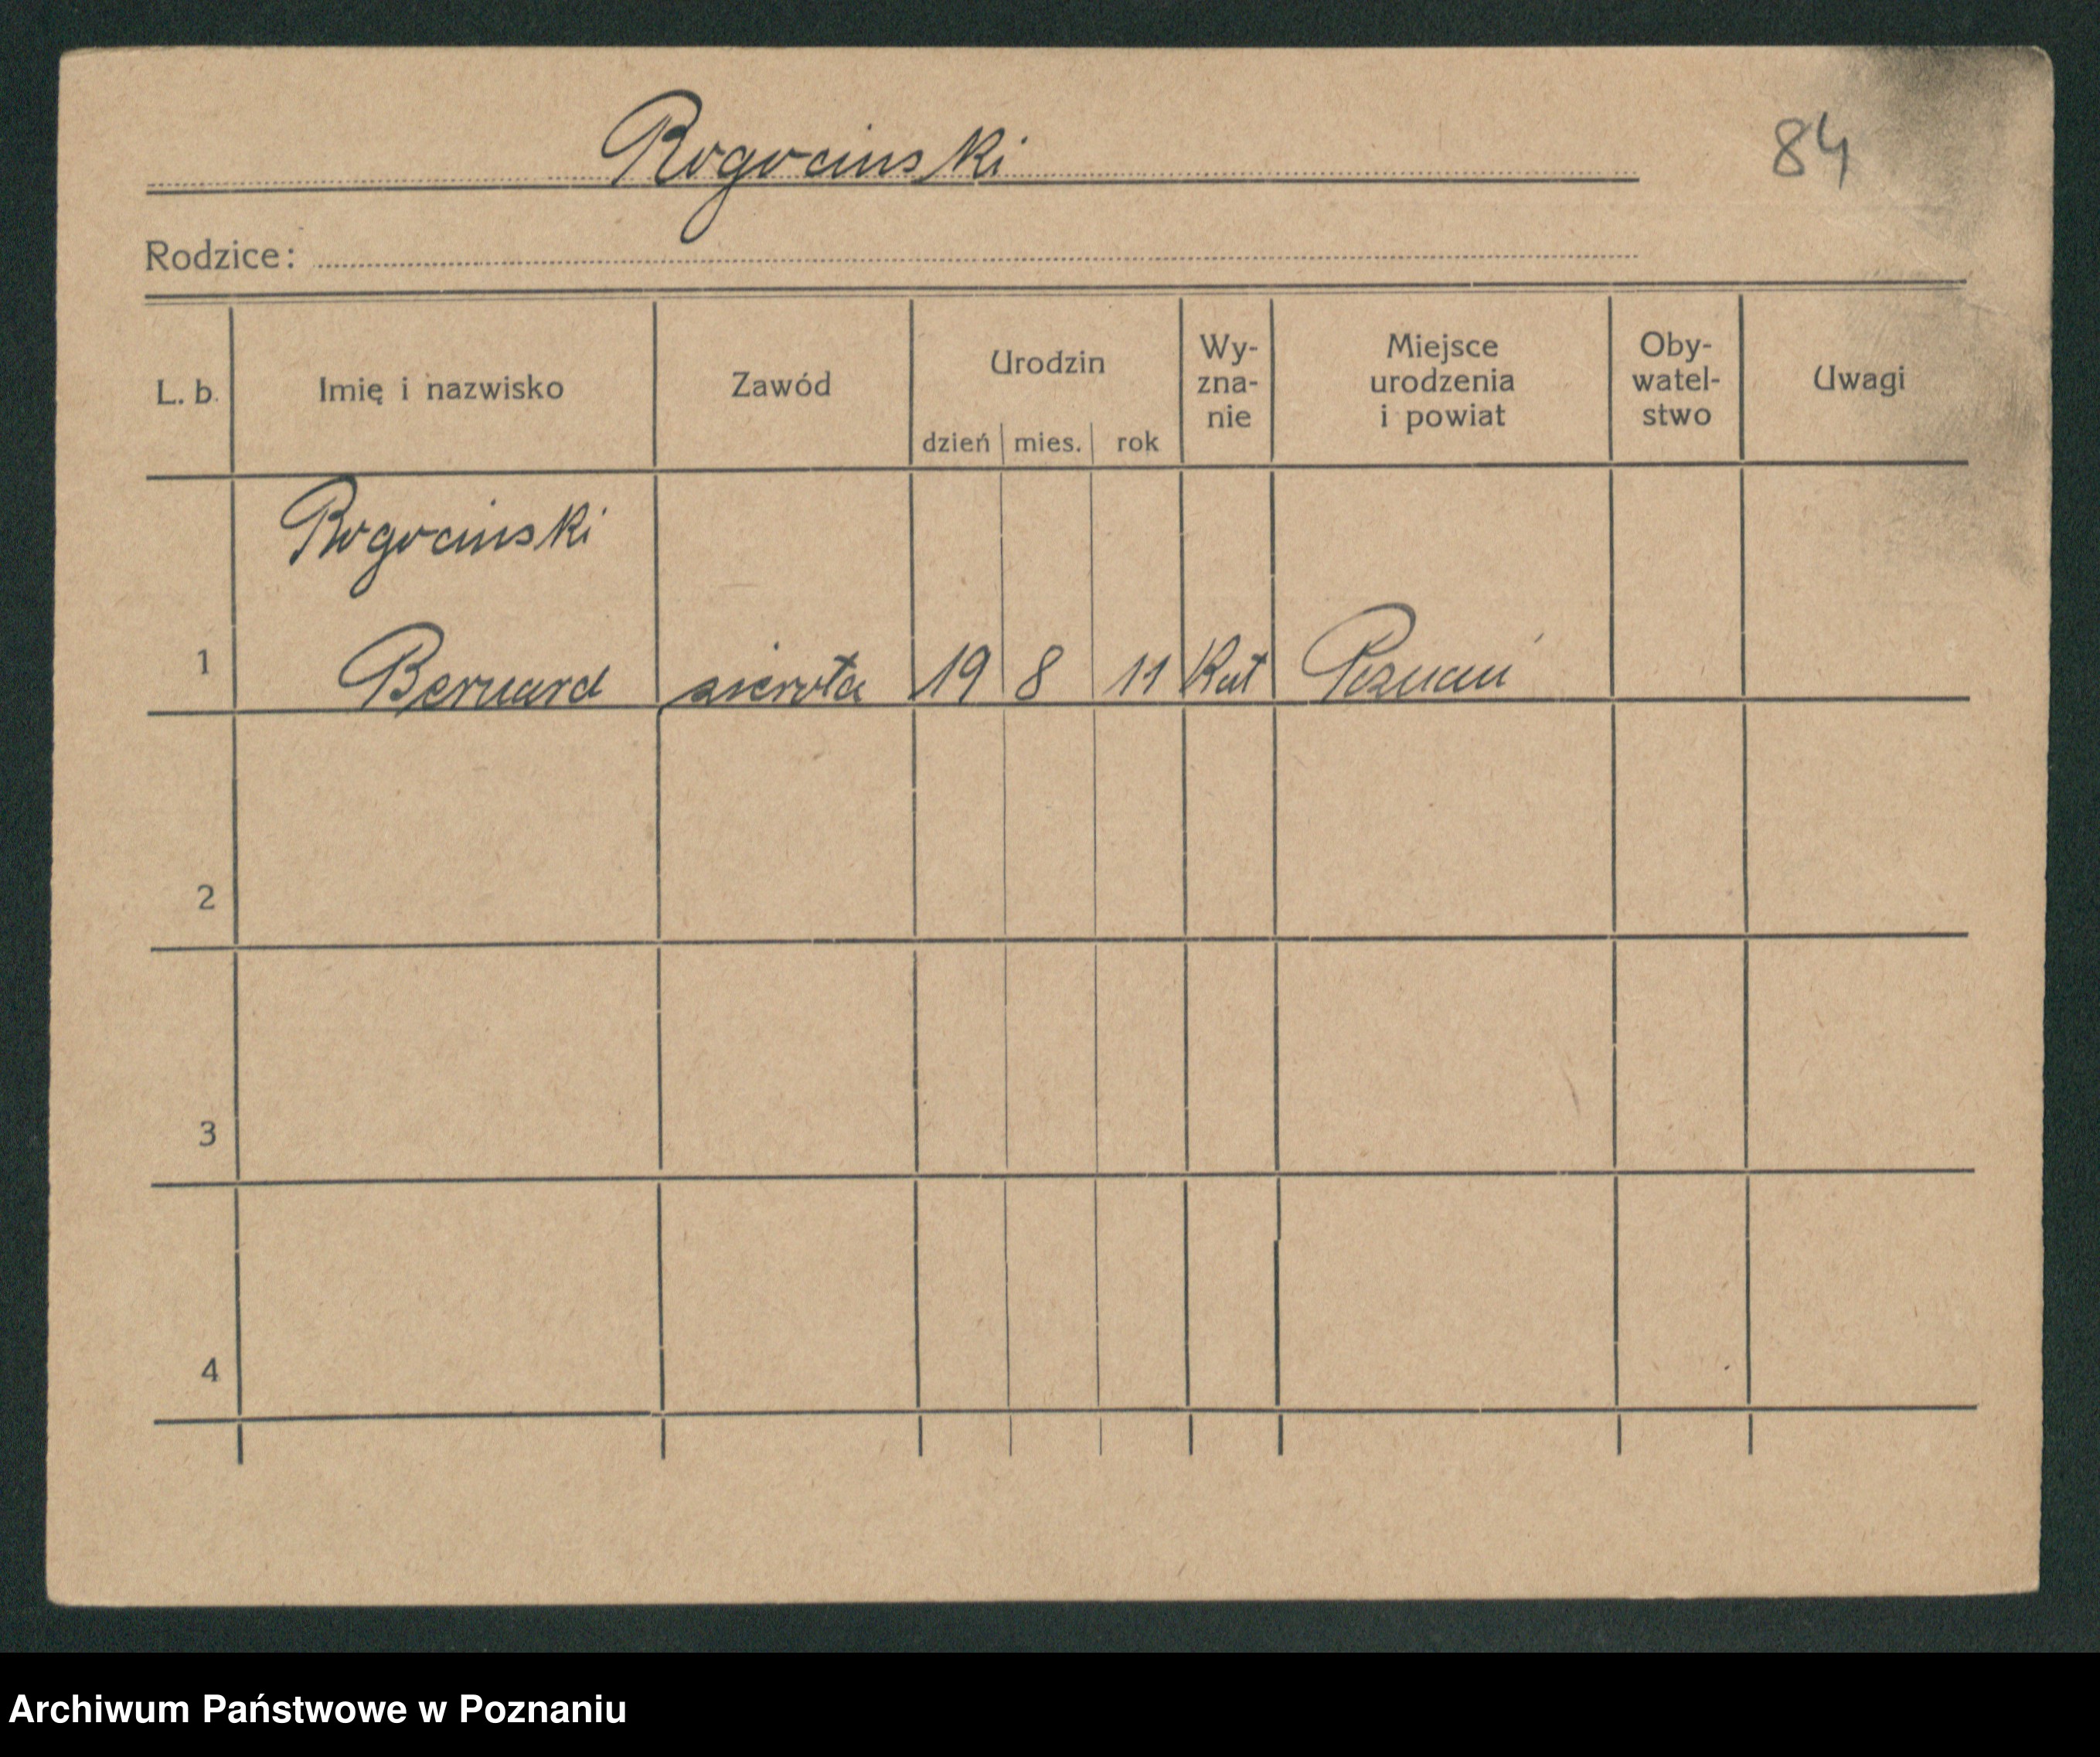 Rogocinski
84
Rodzice:
L. b.
Imię i nazwisko
Zawód
Urodzin
dzień mies. rok
Wy-
zna-
nie
Miejsce
urodzenia
i powiat
Oby-
watel-
stwo
Uwagi
Rogocinski
1 Bernard sierota 19 8 11 Kat Poznań
2
3
4
Archiwum Państwowe w Poznaniu